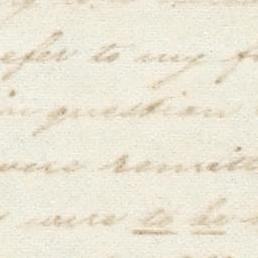 refer to my
in question
were remitt
were to be